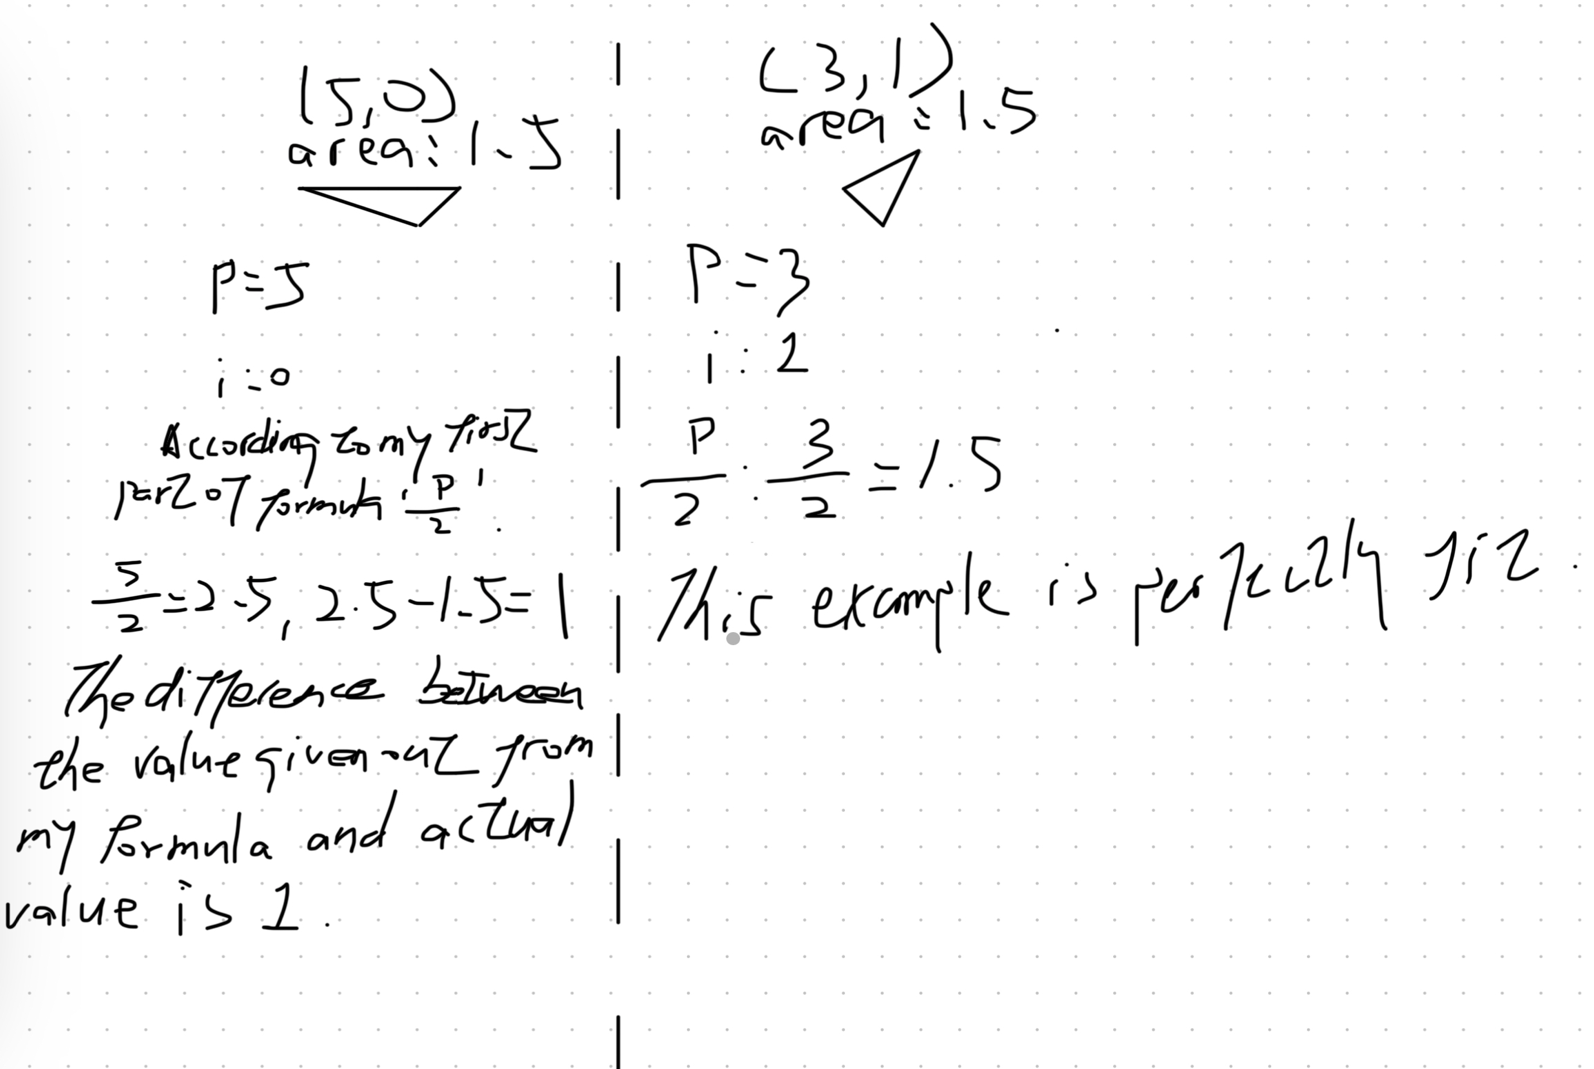 (5,0)
area: 1.5
P=5
i=0
According to my first
part of formula 'P/2'.
5/2=2.5, 2.5-1.5=1
The difference between
the value given out from
my formula and actual
value is 1.
(3,1)
area: 1.5
P=3
i:1
P/2 : 3/2 = 1.5
This example is perfectly fit.